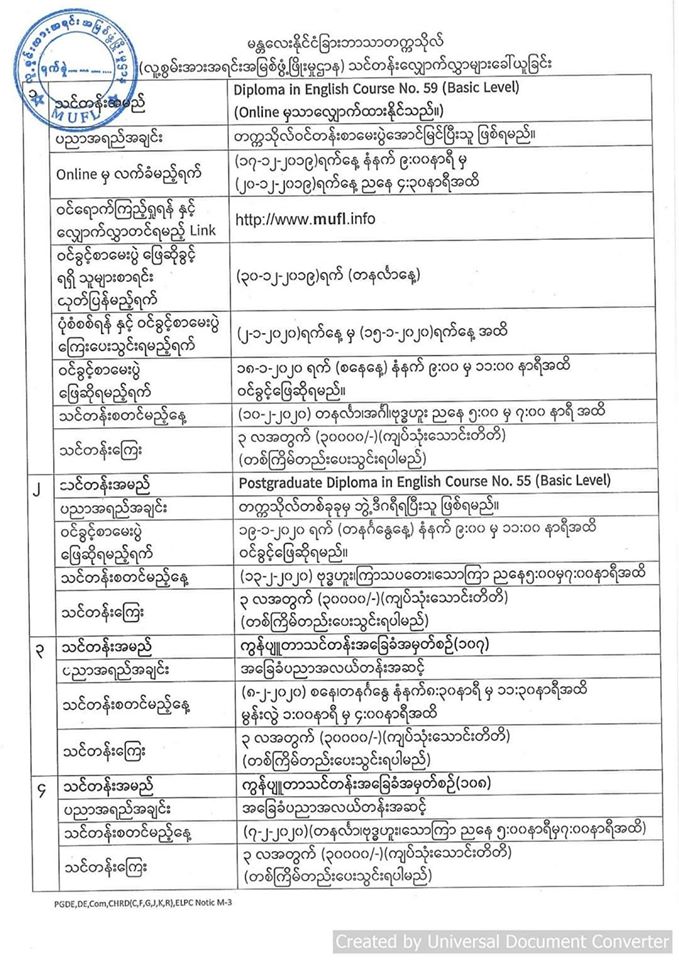 လူ့စွမ်းအားအရင်းအမြစ်ဖွံ့ဖြိုးမှုဌာန
ရက်စွဲ
MUFL
မန္တလေးနိုင်ငံခြားဘာသာတက္ကသိုလ်
(လူ့စွမ်းအားအရင်းအမြစ်ဖွံ့ဖြိုးမှုဌာန) သင်တန်းလျှောက်လွှာများခေါ်ယူခြင်း
၁ သင်တန်းအမည် Diploma in English Course No. 59 (Basic Level)
(Online မှသာလျှောက်ထားနိုင်သည်။)
ပညာအရည်အချင်း တက္ကသိုလ်ဝင်တန်းစာမေးပွဲအောင်မြင်ပြီးသူ ဖြစ်ရမည်။
Online မှ လက်ခံမည့်ရက် (၁၇-၁၂-၂၀၁၉)ရက်နေ့ နံနက် ၉:၀၀နာရီ မှ
(၂၀-၁၂-၂၀၁၉)ရက်နေ့ ညနေ ၄:၃၀နာရီအထိ
ဝင်ရောက်ကြည့်ရှုရန် နှင့်
လျှောက်လွှာတင်ရမည့် Link http://www.mufl.info
ဝင်ခွင့်စာမေးပွဲ ဖြေဆိုခွင့်
ရရှိ သူများစာရင်း
ထုတ်ပြန်မည့်ရက် (၃၀-၁၂-၂၀၁၉)ရက် (တနင်္လာနေ့)
ပုံစံစစ်ရန် နှင့် ဝင်ခွင့်စာမေးပွဲ
ကြေးပေးသွင်းရမည့်ရက် (၂-၁-၂၀၂၀)ရက်နေ့ မှ (၁၅-၁-၂၀၂၀)ရက်နေ့ အထိ
ဝင်ခွင့်စာမေးပွဲ
ဖြေဆိုရမည့်ရက် ၁၈-၁-၂၀၂၀ ရက် (စနေနေ့) နံနက် ၉:၀၀ မှ ၁၁:၀၀ နာရီအထိ
ဝင်ခွင့်ဖြေဆိုရမည်။
သင်တန်းစတင်မည့်နေ့ (၁၀-၂-၂၀၂၀) တနင်္လာ၊အင်္ဂါ၊ဗုဒ္ဓဟူး ညနေ ၅:၀၀ မှ ၇:၀၀ နာရီ အထိ
သင်တန်းကြေး ၃ လအတွက် (၃၀၀၀၀/-)(ကျပ်သုံးသောင်းတိတိ)
(တစ်ကြိမ်တည်းပေးသွင်းရပါမည်)
၂ သင်တန်းအမည် Postgraduate Diploma in English Course No. 55 (Basic Level)
ပညာအရည်အချင်း တက္ကသိုလ်တစ်ခုခုမှ ဘွဲ့ဒီဂရီရပြီးသူ ဖြစ်ရမည်။
ဝင်ခွင့်စာမေးပွဲ
ဖြေဆိုရမည့်ရက် ၁၉-၁-၂၀၂၀ ရက် (တနင်္ဂနွေနေ့) နံနက် ၉:၀၀ မှ ၁၁:၀၀ နာရီအထိ
ဝင်ခွင့်ဖြေဆိုရမည်။
သင်တန်းစတင်မည့်နေ့ (၁၃-၂-၂၀၂၀) ဗုဒ္ဓဟူး၊ကြာသပတေး၊သောကြာ ညနေ၅:၀၀မှ၇:၀၀နာရီအထိ
သင်တန်းကြေး ၃ လအတွက် (၃၀၀၀၀/-)(ကျပ်သုံးသောင်းတိတိ)
(တစ်ကြိမ်တည်းပေးသွင်းရပါမည်)
၃ သင်တန်းအမည် ကွန်ပျူတာသင်တန်းအခြေခံအမှတ်စဉ်(၁၀၇)
ပညာအရည်အချင်း အခြေခံပညာအလယ်တန်းအဆင့်
သင်တန်းစတင်မည့်နေ့ (၈-၂-၂၀၂၀) စနေ၊တနင်္ဂနွေ နံနက်၈:၃၀နာရီ မှ ၁၁:၃၀နာရီအထိ
မွန်းလွဲ ၁:၀၀နာရီ မှ ၄:၀၀နာရီအထိ
သင်တန်းကြေး ၃ လအတွက် (၃၀၀၀၀/-)(ကျပ်သုံးသောင်းတိတိ)
(တစ်ကြိမ်တည်းပေးသွင်းရပါမည်)
၄ သင်တန်းအမည် ကွန်ပျူတာသင်တန်းအခြေခံအမှတ်စဉ်(၁၀၈)
ပညာအရည်အချင်း အခြေခံပညာအလယ်တန်းအဆင့်
သင်တန်းစတင်မည့်နေ့ (၇-၂-၂၀၂၀)(တနင်္လာ၊ဗုဒ္ဓဟူး၊သောကြာ ညနေ ၅:၀၀နာရီမှ၇:၀၀နာရီအထိ)
သင်တန်းကြေး ၃ လအတွက် (၃၀၀၀၀/-)(ကျပ်သုံးသောင်းတိတိ)
(တစ်ကြိမ်တည်းပေးသွင်းရပါမည်)
PGDE,DE,Com,CHRD(C,F,G,J,K,R),ELPC Notic M-3
Created by Universal Document Converter